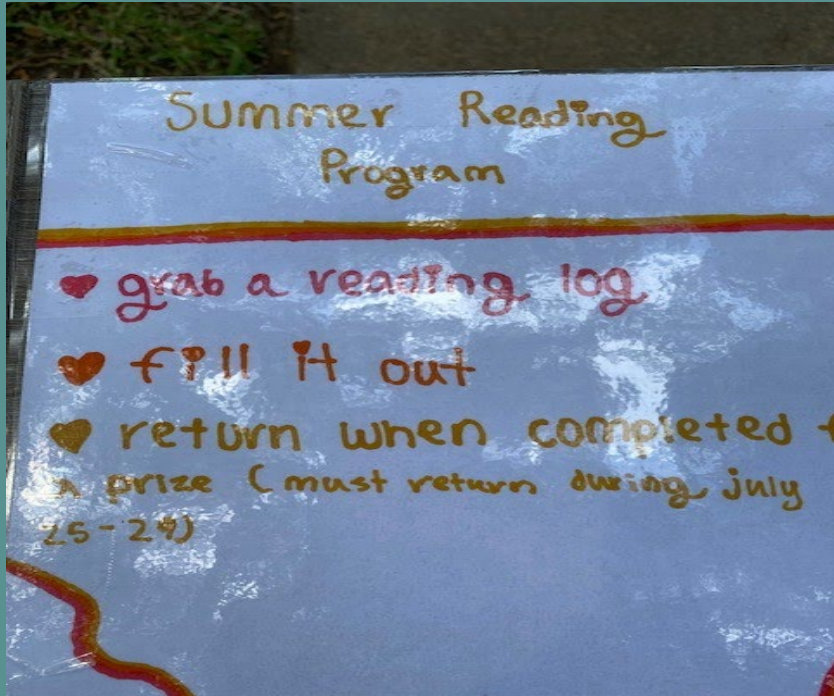 Summer Reading
Program
grab a reading log
fill it out
return when completed
a prize (must return during july
25-29)